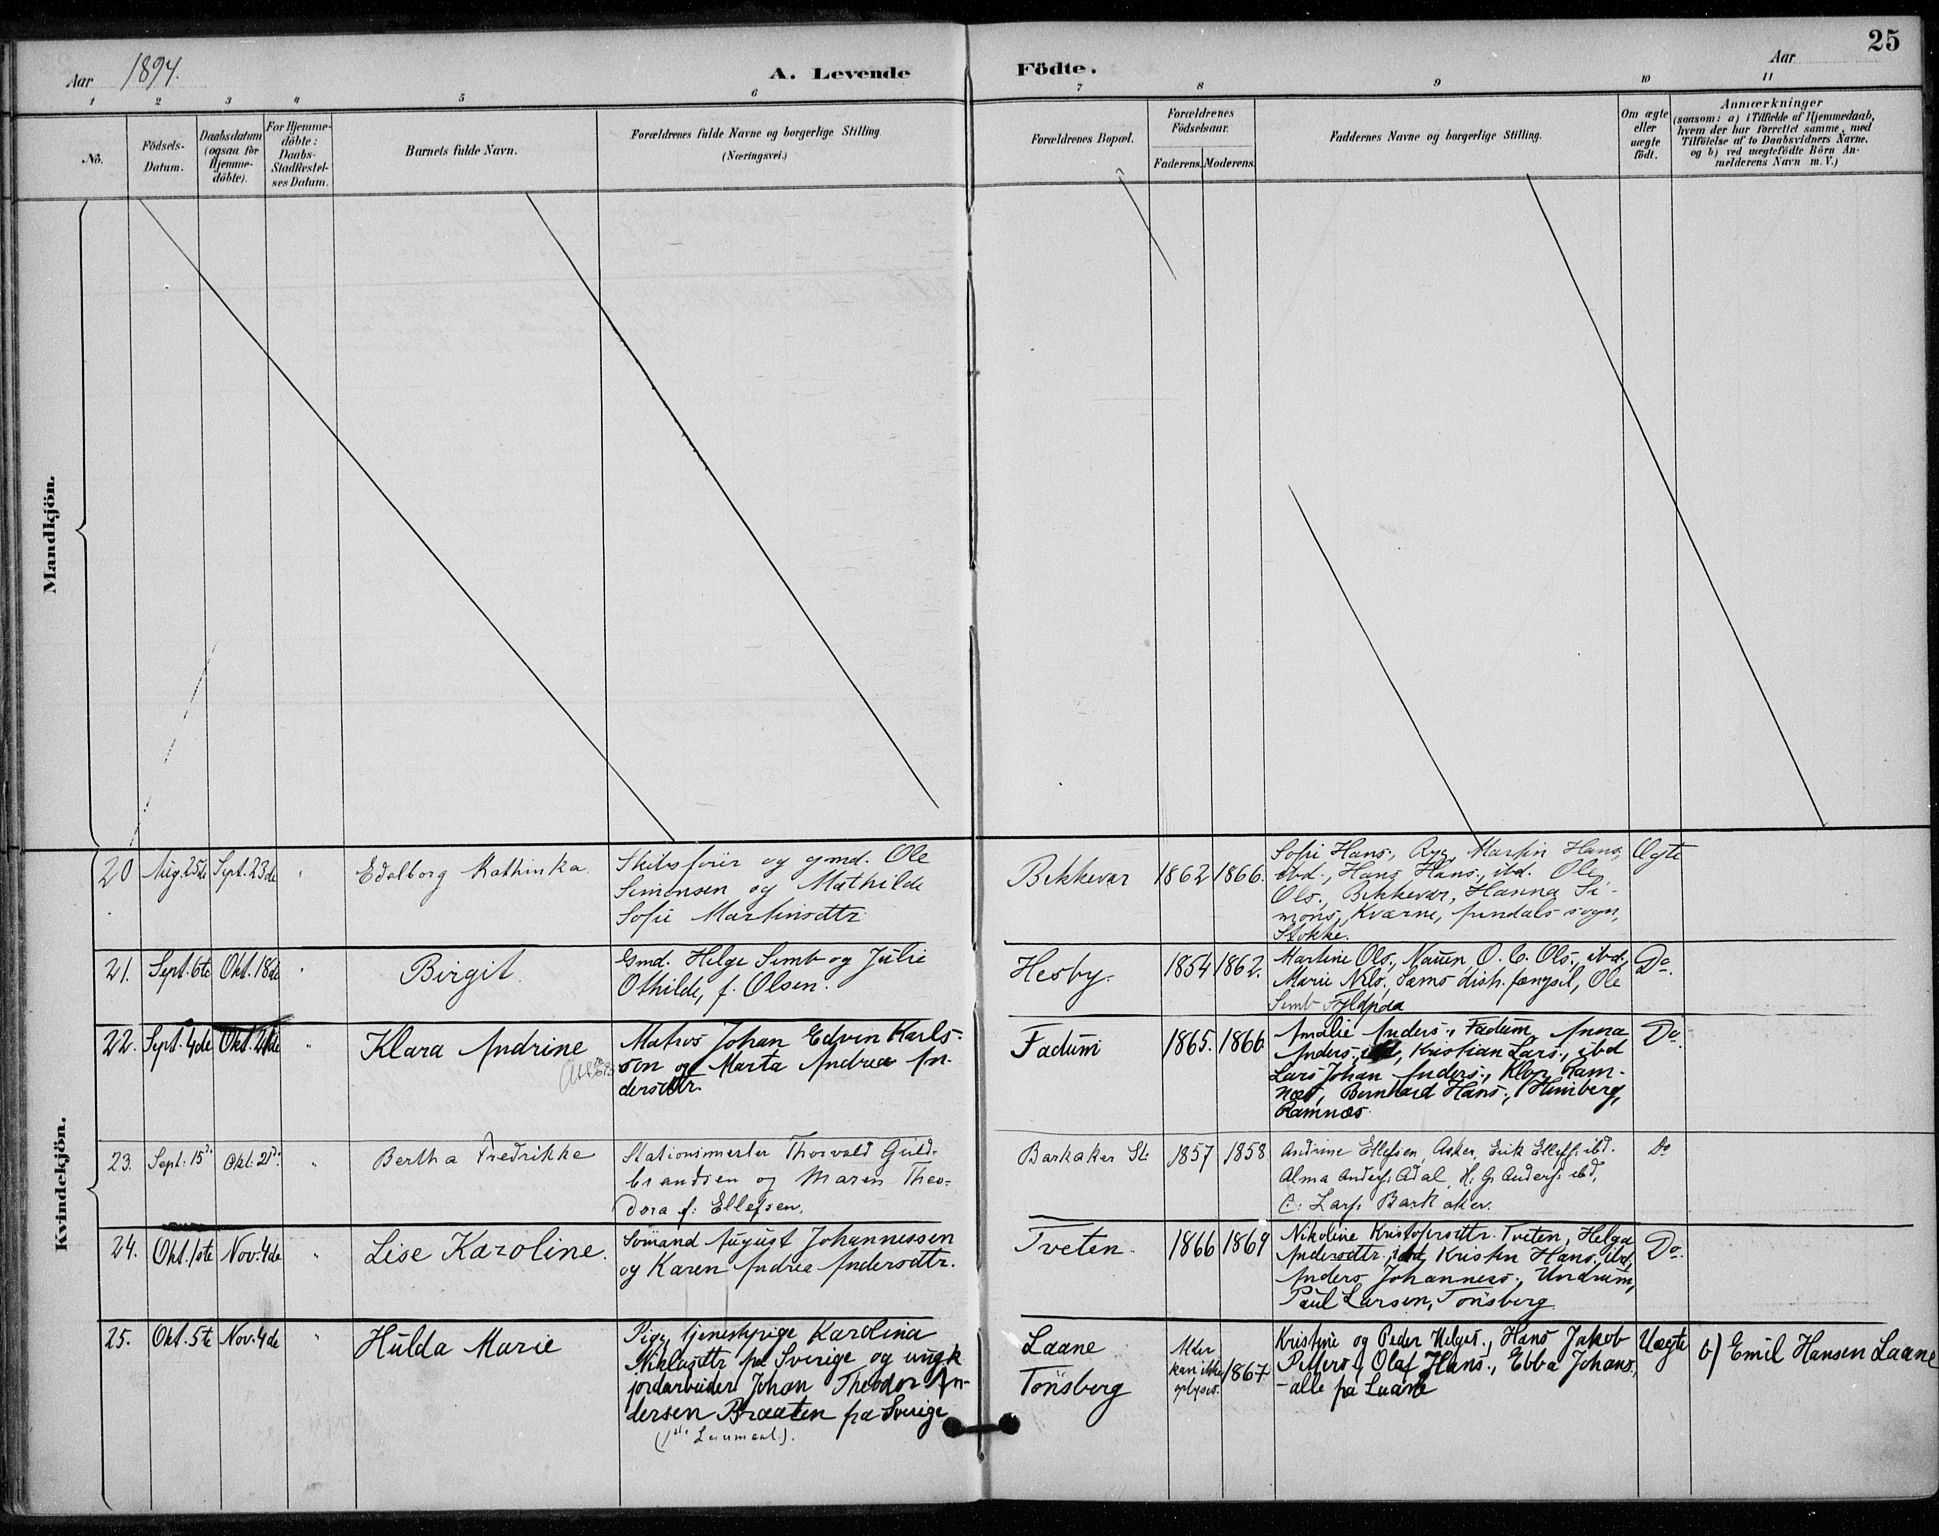 25
Aar 1894.
A. Levende Födte.
Aar
1 2 3 4 5 6 7 8 9 10 11
No.
Födsels-
Datum.
Daabsdatum
(ogsaa for
Hjemme-
döbte).
For Hjemme-
döbte:
Daabs-
Stadfæstel-
ses Datum.
Barnets fulde Navn.
Forældrenes fulde Navne og borgerlige Stilling
(Næringsvei.)
Forældrenes Bopæl.
Forældrenes
Födselsaar.
Faderens. Moderens.
Faddernes Navne og borgerlige Stilling.
Om ægte
eller
uægte
födt.
Anmærkninger
(saasom: a) i Tilfælde af Hjemmedaab,
hvem der har forrettet samme, med
Tilföielse af to Daabsvidners Navne.
og b) ved uægtefödte Börn An-
melderens Navn m. V.)
Mandkjön.
Kvindekjön.
20 Aug. 25de Sept. 23de " Edelborg Kathinka.
Skibsförer og gmd. Ole
Simensen og Mathilde
Sofie Martinsdtr.
Bekkevar 1862 1866.
Sofie Hans., Martin Hans.,
ibd., Hans Hans., ibd. Ole
Ols., Bekkevar, Hanna Si-
mons., Kværne, sogn,
Stokke.
Ægte
21. Sept. 6te Okt. 18de " Birgit.
Gmd. Helge Semb og Julie
Othilde, f. Olsen.
Hesby. 1854 1862.
Martine Ols., Nauen O. C. Ols., ibd.,
Marie Nils., Ole
Semb
Do.
22. Sept. 4de Okt. 21de " Klara Andrine
Matros Johan Edvin Karls-
son og Marta Andrea An-
dersdtr.
Fadum 1865. 1866
Amalie Anders., Fadum, Anna
Anders., Kristian Lars., ibd
Lars Johan Anders., Ram-
næs, Bernhard Hans., Himberg,
Ramnæs.
Do.
23. Sept. 15d. Okt. 21d. " Bertha Fredrikke
Stationsmester Thorvald Guld-
brandsen og Maren Theo-
dora f. Ellefsen.
Barkaker St. 1857 1858
Andrine Ellefsen, Asker, Erik Ellefs. ibd.
Alma Anders. Adal, H. G. Anders. ibd,
C. Lars. Barkaker.
Do
24. Okt. 1ste Nov. 4de " Lise Karoline.
Sömand August Johannessen
og Karen Andrea Andersdtr.
Tveten. 1866 1869
Nikoline Kristofersdtr. Tveten, Helga
Andersdtr., ibd, Kristin Hans., ibd,
Anders Johanness., Undrum,
Paul Larsen, Tönsberg
Do.
25. Okt. 5te Nov. 4de " Hulda Marie
Pige, tjenestepige Karolina
Niklasdtr fra Sverige og ungk
jordarbeider Johan Theodor An-
dersen Braaten fra Sverige
(1ste Leiermaal.).
Laane
Tönsberg
Alder
kan ikke
oplyses. 1867
Kristine og Peder Helges., Hans Jakob
Petters., Olaf Hans., Ebba Johans.,
- alle fra Laane
Uægte b) Emil Hansen Laane